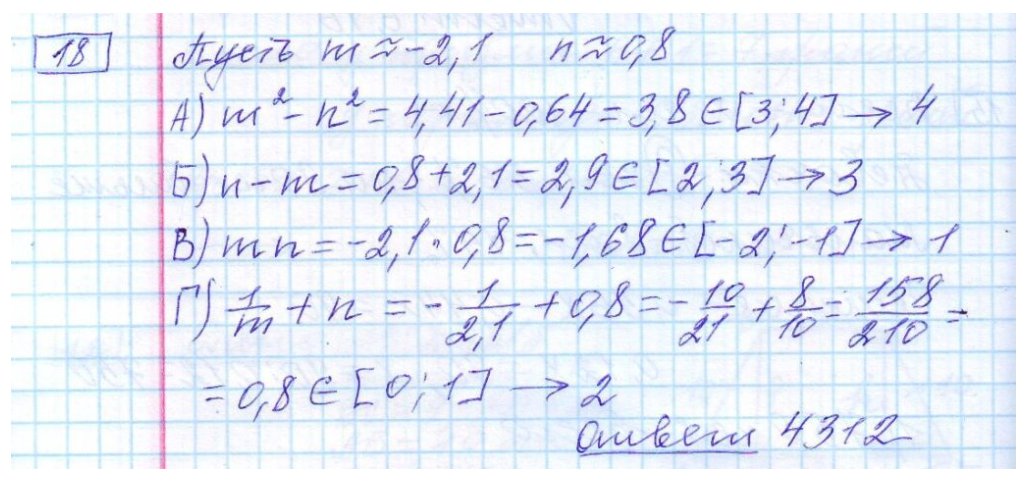 18 Пусть m ≈ -2,1 n ≈ 0,8
А) m² - n² = 4,41 - 0,64 = 3,8 ∈ [3; 4] → 4
Б) n - m = 0,8 + 2,1 = 2,9 ∈ [2; 3] → 3
В) mn = -2,1 · 0,8 = -1,68 ∈ [-2; -1] → 1
Г) 1/m + n = - 1/2,1 + 0,8 = - 10/21 + 8/10 = 158/210 =
= 0,8 ∈ [0; 1] → 2
Ответ 4312